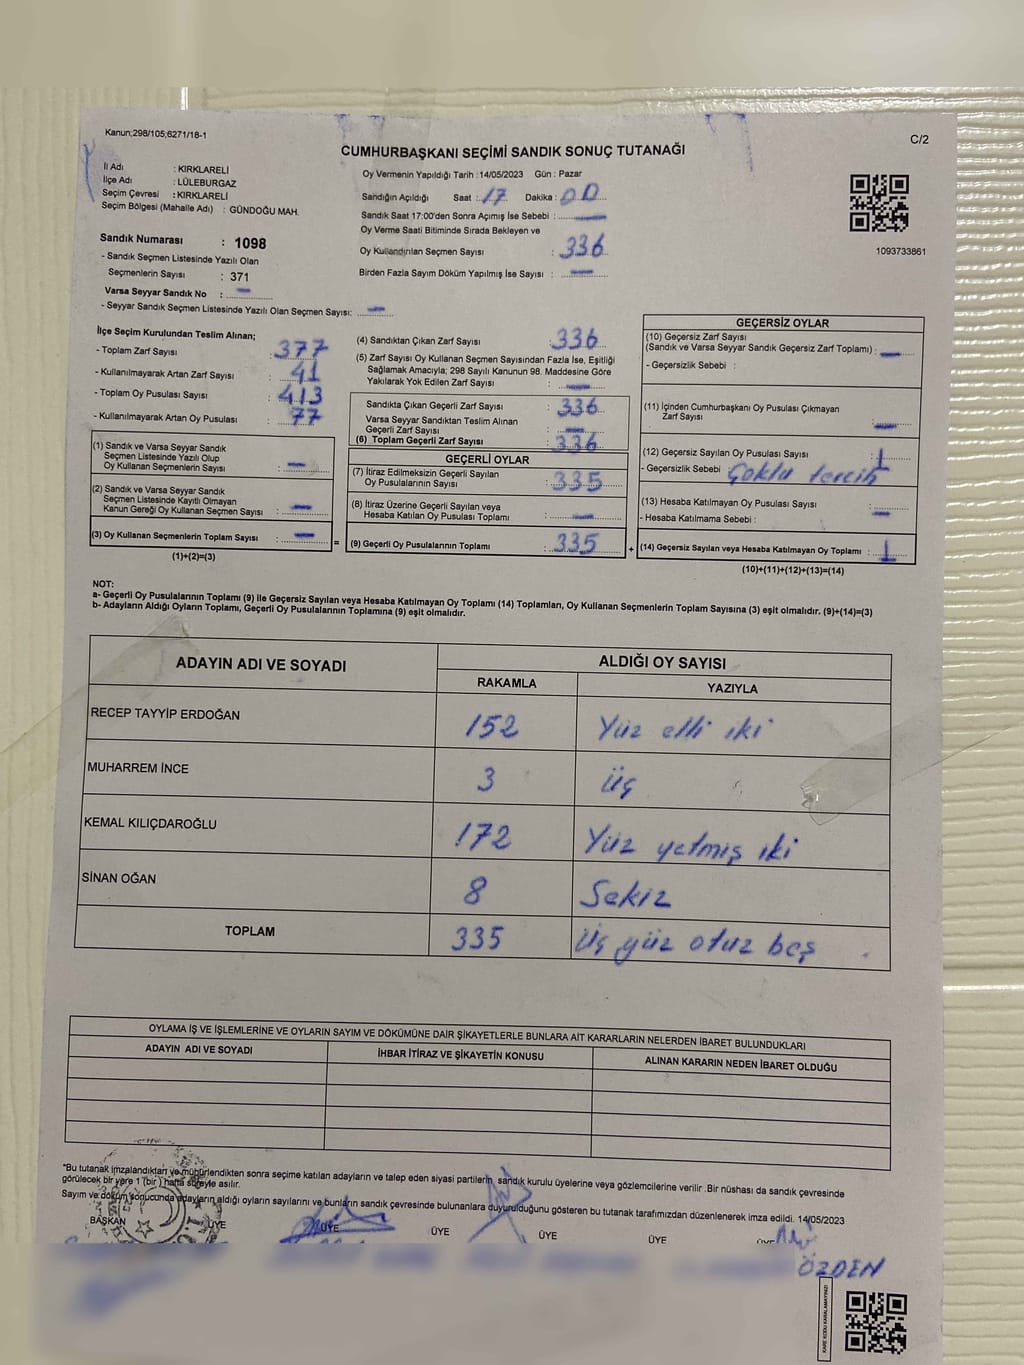 Kanun;298/105;6271/18-1
C/2
CUMHURBAŞKANI SEÇİMİ SANDIK SONUÇ TUTANAĞI
İl Adı : KIRKLARELİ
İlçe Adı : LÜLEBURGAZ
Seçim Çevresi : KIRKLARELİ
Seçim Bölgesi (Mahalle Adı) : GÜNDOĞU MAH.
Oy Vermenin Yapıldığı Tarih :14/05/2023 Gün : Pazar
Sandığın Açıldığı Saat : 17 Dakika : 00
Sandık Saat 17:00'den Sonra Açımış İse Sebebi : —
Oy Verme Saati Bitiminde Sırada Bekleyen ve
Oy Kullandırılan Seçmen Sayısı : 336
Birden Fazla Sayım Döküm Yapılmış İse Sayısı : —
1093733861
Sandık Numarası : 1098
- Sandık Seçmen Listesinde Yazılı Olan
Seçmenlerin Sayısı : 371
Varsa Seyyar Sandık No : —
- Seyyar Sandık Seçmen Listesinde Yazılı Olan Seçmen Sayısı: —
İlçe Seçim Kurulundan Teslim Alınan;
- Toplam Zarf Sayısı : 377
- Kullanılmayarak Artan Zarf Sayısı : 41
- Toplam Oy Pusulası Sayısı : 413
- Kullanılmayarak Artan Oy Pusulası : 77
(1) Sandık ve Varsa Seyyar Sandık
Seçmen Listesinde Yazılı Olup
Oy Kullanan Seçmenlerin Sayısı : —
(2) Sandık ve Varsa Seyyar Sandık
Seçmen Listesinde Kayıtlı Olmayan
Kanun Gereği Oy Kullanan Seçmen Sayısı : —
(3) Oy Kullanan Seçmenlerin Toplam Sayısı : —
(1)+(2)=(3)
=
(4) Sandıktan Çıkan Zarf Sayısı : 336
(5) Zarf Sayısı Oy Kullanan Seçmen Sayısından Fazla İse, Eşitliği
Sağlamak Amacıyla; 298 Sayılı Kanunun 98. Maddesine Göre
Yakılarak Yok Edilen Zarf Sayısı : —
Sandıkta Çıkan Geçerli Zarf Sayısı : 336
Varsa Seyyar Sandıktan Teslim Alınan
Geçerli Zarf Sayısı : —
(6) Toplam Geçerli Zarf Sayısı : 336
GEÇERLİ OYLAR
(7) İtiraz Edilmeksizin Geçerli Sayılan
Oy Pusulalarının Sayısı : 335
(8) İtiraz Üzerine Geçerli Sayılan veya
Hesaba Katılan Oy Pusulası Toplamı : —
(9) Geçerli Oy Pusulalarının Toplamı : 335
+
GEÇERSİZ OYLAR
(10) Geçersiz Zarf Sayısı
(Sandık ve Varsa Seyyar Sandık Geçersiz Zarf Toplamı) : —
- Geçersizlik Sebebi :
(11) İçinden Cumhurbaşkanı Oy Pusulası Çıkmayan
Zarf Sayısı : —
(12) Geçersiz Sayılan Oy Pusulası Sayısı : 1
- Geçersizlik Sebebi Çoklu tercih
(13) Hesaba Katılmayan Oy Pusulası Sayısı : —
- Hesaba Katılmama Sebebi :
(14) Geçersiz Sayılan veya Hesaba Katılmayan Oy Toplamı : 1
(10)+(11)+(12)+(13)=(14)
NOT:
a- Geçerli Oy Pusulalarının Toplamı (9) ile Geçersiz Sayılan veya Hesaba Katılmayan Oy Toplamı (14) Toplamları, Oy Kullanan Seçmenlerin Toplam Sayısına (3) eşit olmalıdır. (9)+(14)=(3)
b- Adayların Aldığı Oyların Toplamı, Geçerli Oy Pusulalarının Toplamına (9) eşit olmalıdır.
ADAYIN ADI VE SOYADI ALDIĞI OY SAYISI
RAKAMLA YAZIYLA
RECEP TAYYİP ERDOĞAN 152 Yüz elli iki
MUHARREM İNCE 3 Üç
KEMAL KILIÇDAROĞLU 172 Yüz yetmiş iki
SİNAN OĞAN 8 Sekiz
TOPLAM 335 Üç yüz otuz beş
OYLAMA İŞ VE İŞLEMLERİNE VE OYLARIN SAYIM VE DÖKÜMÜNE DAİR ŞİKAYETLERLE BUNLARA AİT KARARLARIN NELERDEN İBARET BULUNDUKLARI
ADAYIN ADI VE SOYADI İHBAR İTİRAZ VE ŞİKAYETİN KONUSU ALINAN KARARIN NEDEN İBARET OLDUĞU
*Bu tutanak imzalandıktan ve mühürlendikten sonra seçime katılan adayların ve talep eden siyasi partilerin, sandık kurulu üyelerine veya gözlemcilerine verilir .Bir nüshası da sandık çevresinde
görülecek bir yere 1 (bir ) hafta süreyle asılır.
Sayım ve döküm sonucunda adayların aldığı oyların sayılarını ve bunların sandık çevresinde bulunanlara duyurulduğunu gösteren bu tutanak tarafımızdan düzenlenerek imza edildi. 14/05/2023
BAŞKAN ÜYE ÜYE ÜYE ÜYE ÜYE ÜYE
ÖZDEN